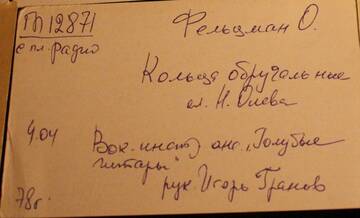 Гп 12871
Фельцман О.
с пл. радио
Кольца обручальные
сл. И. Олева
4.04
Вок.-инстр анс. „Голубые
гитары"
рук Игорь Гранов
78г.